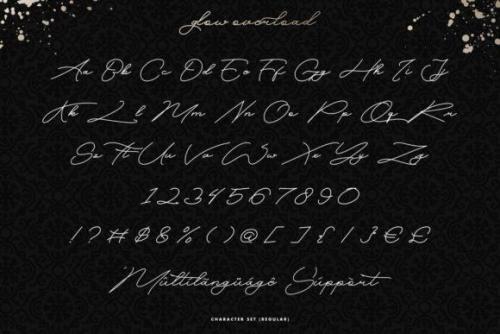 glow overload
Aa Bb Cc Dd Ee Ff Gg Hh Ii Jj
Kk Ll Mm Nn Oo Pp Qq Rr
Ss Tt Uu Vv Ww Xx Yy Zz
1234567890
!?#$&%()@[]{/}€£
Mültilängüágê Súppört
CHARACTER SET (REGULAR)